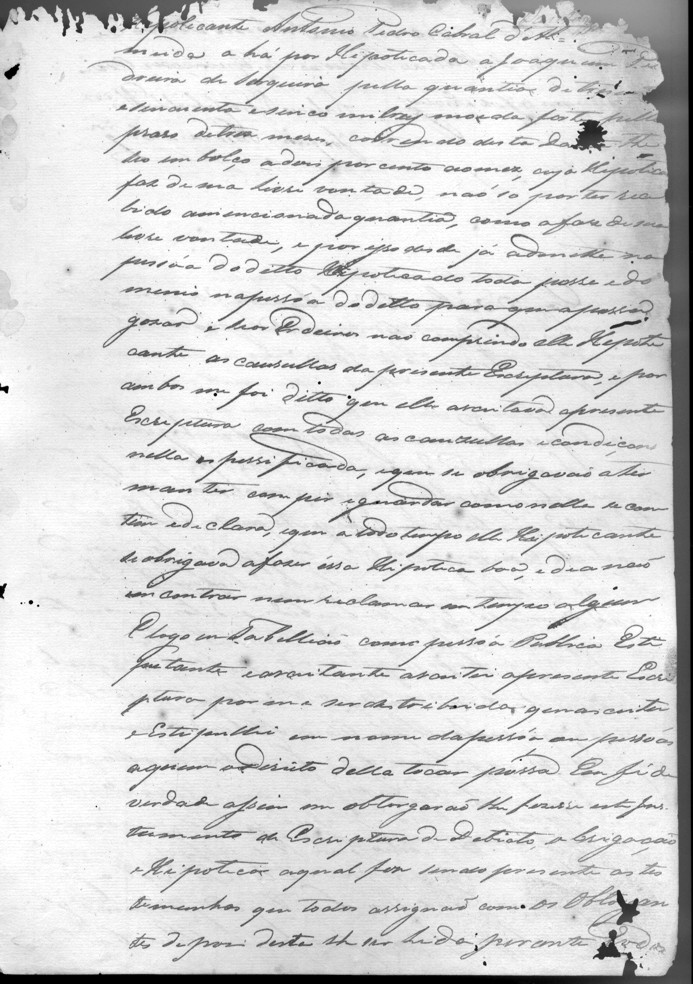 policante Antonio Pedro Cabral d'Al=
meida a há por Hipoticada a Joaquim
de Siqueira pella quantia de
e sincoenta e sinco mil reis moeda forte pello
praso de tres mezes, correndo desta
bolço a dois por cento ao mez, cuja Hipotica
faz de sua livre vontade, naó so por ter rece
bido a mencionada quantia, como a faz de sua
livre vontade, e por isso desde já na
pessóa do ditto Hipoticado toda posse e do
menio na pessóa do ditto para que a possaó
gozar e seos Erdeiros naó comprindo elle Hipoti
cante as causullas da prezente Escriptura, e por
ambos me foi ditto que elle aseitavaó a prezente
Escriptura com todas as cauzullas e condiçois
nella espessificada, e que se obrigavaó a ter
manter comprir e guardar como nella se con
tem e declara, e que a todo tempo elle Hipoticante
se obrigava a fazer essa Hipotica boa, e de a naó
encontrar nem reclamar em tempo algum
E logo eu Tabelliaó como pessóa Publica Esti
pulante e aseitante aseitei a prezente Escri
ptura por me ser destribuida, que aseitei
e Estepullei em nome da pessóa ou pessóas
a quem o Direito della tocar possa Em fé de
verdade assim me obtorgaraó lhe fizesse este Ins
trumento de Escriptura de Debito, obrigação
e Hipotica a qual foi sendo prezente as tes
temunhas que todos assignaó com os
tes depois desta lhe ser lida por mim